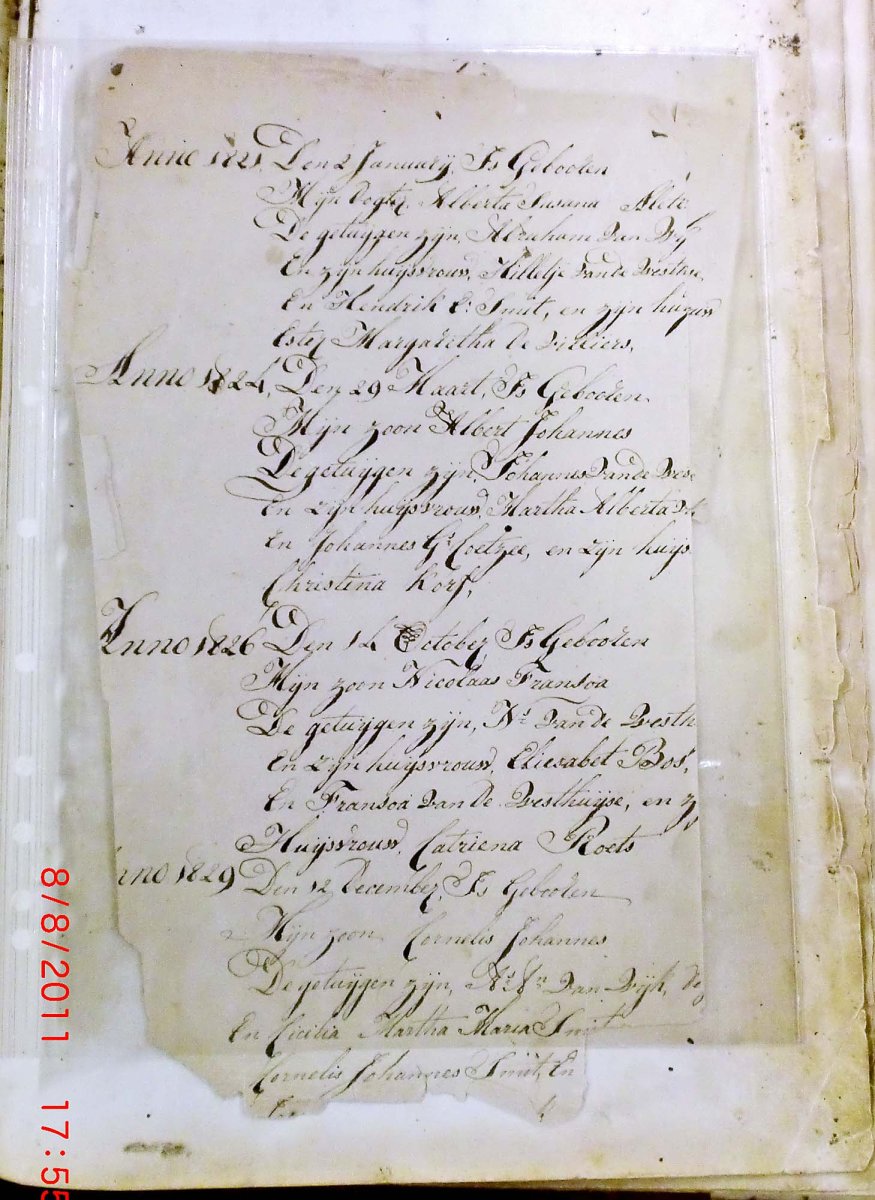 Anno 1821, Den 2 Januarij, Is Gebooren
Mijn Dogter, Alberta Susana Alet
De getuijgen zijn, Abraham van Wij
En zijn huijsvrouw, Hilletje van de Westhuise
En Hendrik C: Smit, en zijn huijsv
Ester Margaretha De Villiers,
Anno 1824, Den 29 Maart, Is Gebooren
Mijn zoon Albert Johannes
De getuijgen zijn, Johannes van de Wes
En zijn huijsvrouw, Martha Alberta
En Johannes G: Coetzee, en zijn huijs
Christina Korf,
Anno 1826 Den 14 October Is Gebooren
Mijn zoon Nicolaas Fransoa
De getuijgen zijn, Ns Van de Westh
En zijn huijsvrouw, Eliesabet Bos,
En Fransoa van De Westhuijse, en z
Huijsvrouw, Catriena Roets
nno 1829 Den 12 December, Is Gebooren
Mijn zoon Cornelis Johannes
De getuijgen zijn, van Wijk,
En Cicilia Martha Maria Smit
Cornelis Johannes Smit, En
8/8/2011 17:55